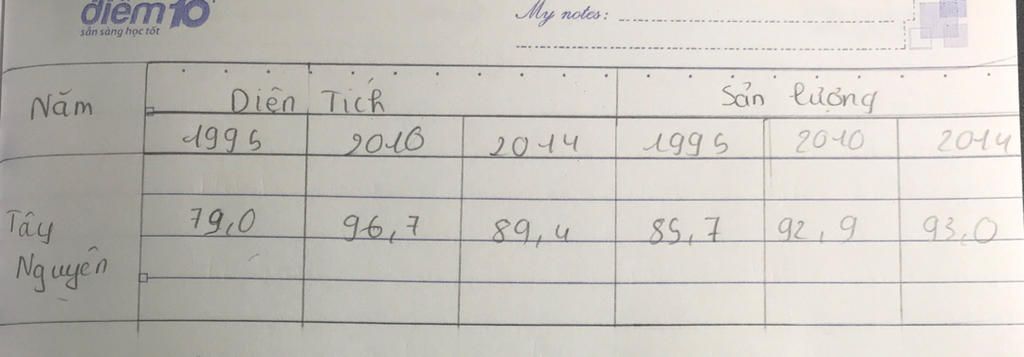 điểm10
sẵn sàng học tốt
My notes:
Năm Diện Tích Sản lượng
1995 2010 2014 1995 2010 2014
Tây 79,0 96,7 89,4 85,7 92,9 93,0
Nguyên